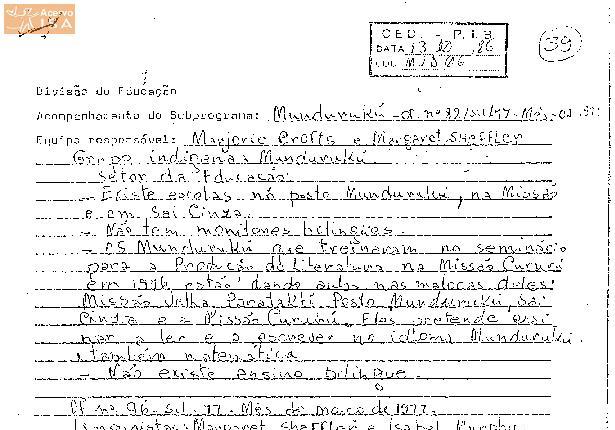 Acervo
ISA
C E D. - P. I. B.
DATA 13 10 86
COD. M I D 06
39
Divisão de Educação
Acompanhamento do Subprograma: Mundurukú - of. nº 82/SIL/77 - Mês -
Equipe responsável: Marjorie Crofts e Margaret Sheffler
Grupo indígena: Mundurukú
Setor da Educação:
- Existe escolas no posto Mundurukú, na Missão
e em Sai Cinza.
- Não tem monitores bilíngües.
- OS Mundurukú que treinaram no seminário
para a Produção de literatura na Missão Cururú
em 1976 estão dando aulas nas malocas deles:
Missão Velha, Posto Mundurukú, Sai
Cinza e a Missão Cururú. Eles pretende ensi
nar a ler e a escrever no idioma Mundurukú
e também matemática
- Não existe ensino bilíngue.
Of nº 96. SIL. 77. Mês de março de 1977.
Linguistas: Margaret Sheffler e Isabel Murphy